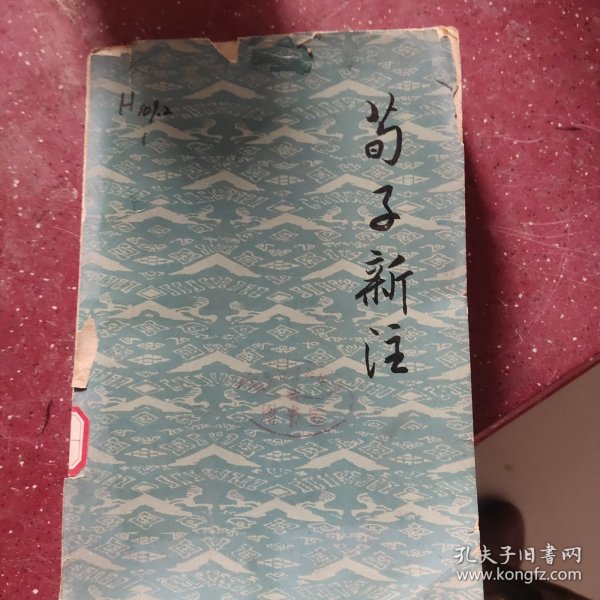 H109.2
1
荀子新注
图书馆
孔夫子旧书网
www.kongfz.com